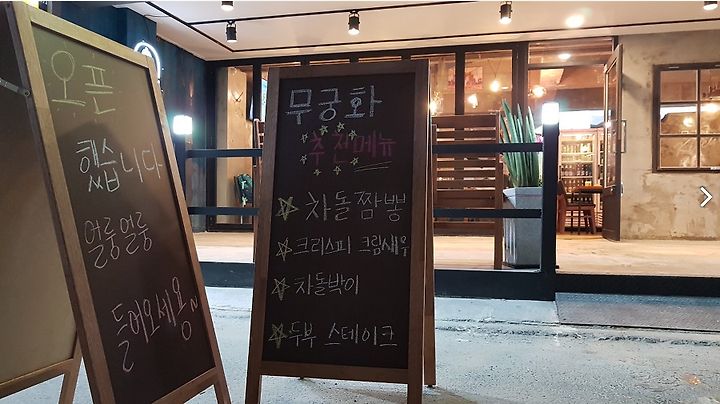 오픈
했습니다
얼룽얼룽
들어오세용~
무궁화
추천메뉴
☆ 차돌짬뽕
☆ 크리스피 크림새우
☆ 차돌박이
☆ 두부 스테이크